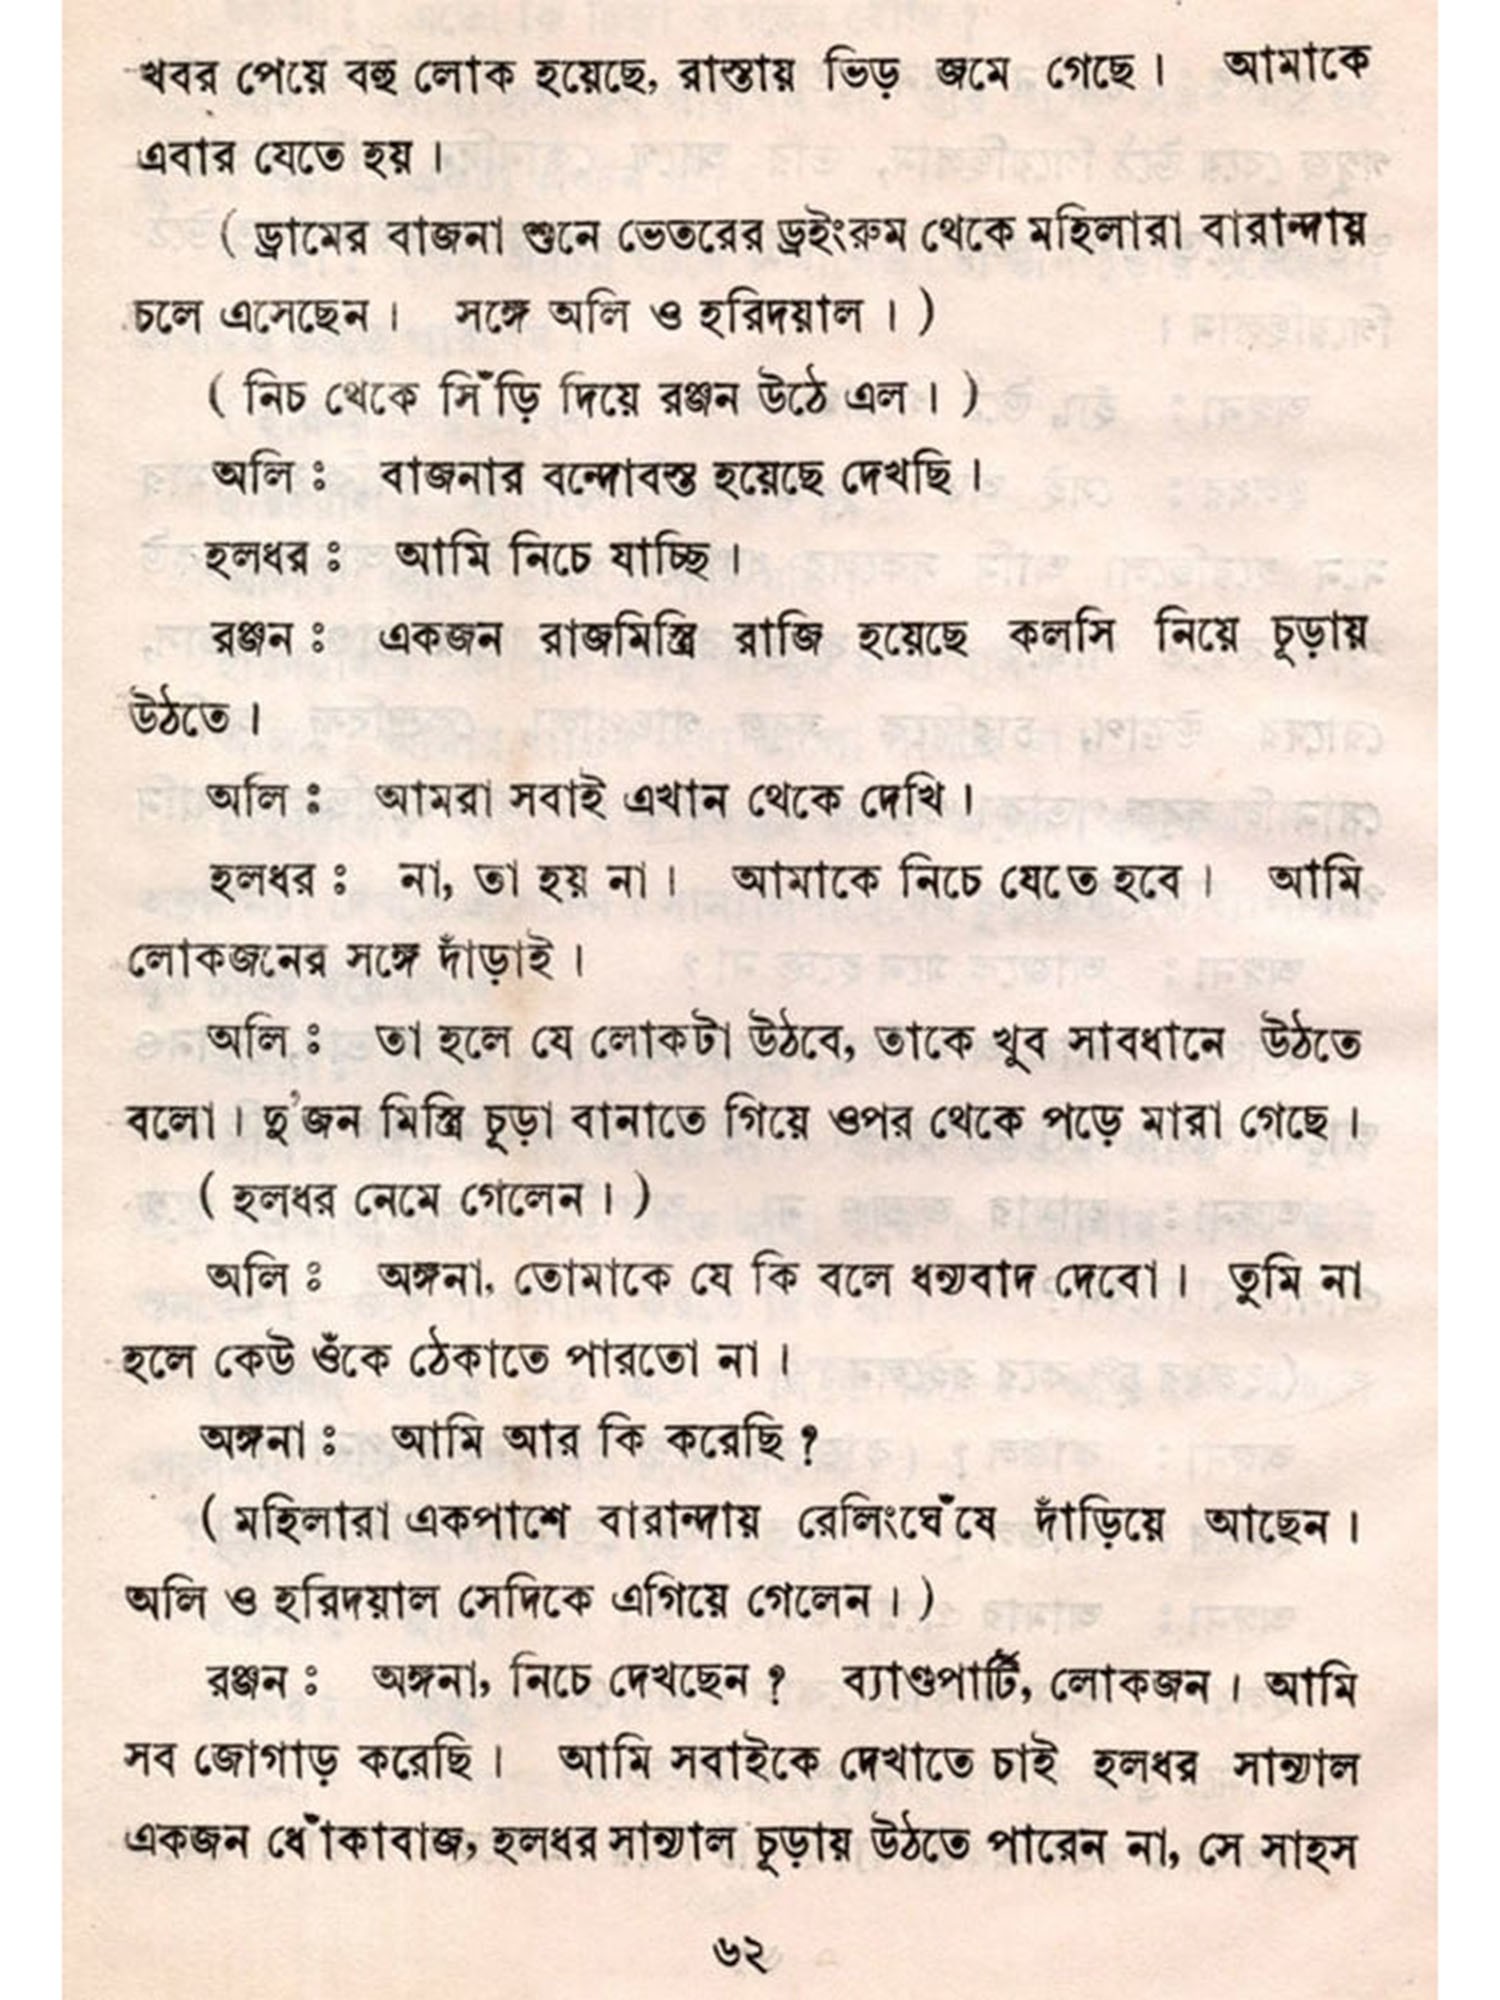 খবর পেয়ে বহু লোক হয়েছে, রাস্তায় ভিড় জমে গেছে। আমাকে
এবার যেতে হয়।
( ড্রামের বাজনা শুনে ভেতরের ড্রইংরুম থেকে মহিলারা বারান্দায়
চলে এসেছেন। সঙ্গে অলি ও হরিদয়াল। )
( নিচ থেকে সিঁড়ি দিয়ে রঞ্জন উঠে এল। )
অলি : বাজনার বন্দোবস্ত হয়েছে দেখছি।
হলধর : আমি নিচে যাচ্ছি।
রঞ্জন : একজন রাজমিস্ত্রি রাজি হয়েছে কলসি নিয়ে চূড়ায়
উঠতে।
অলি : আমরা সবাই এখান থেকে দেখি।
হলধর : না, তা হয় না। আমাকে নিচে যেতে হবে। আমি
লোকজনের সঙ্গে দাঁড়াই।
অলি : তা হলে যে লোকটা উঠবে, তাকে খুব সাবধানে উঠতে
বলো। দু'জন মিস্ত্রি চূড়া বানাতে গিয়ে ওপর থেকে পড়ে মারা গেছে।
( হলধর নেমে গেলেন। )
অলি : অঙ্গনা, তোমাকে যে কি বলে ধন্যবাদ দেবো। তুমি না
হলে কেউ ওঁকে ঠেকাতে পারতো না।
অঙ্গনা : আমি আর কি করেছি ?
( মহিলারা একপাশে বারান্দায় রেলিংঘেঁষে দাঁড়িয়ে আছেন।
অলি ও হরিদয়াল সেদিকে এগিয়ে গেলেন। )
রঞ্জন : অঙ্গনা, নিচে দেখছেন ? ব্যাণ্ডপার্টি, লোকজন। আমি
সব জোগাড় করেছি। আমি সবাইকে দেখাতে চাই হলধর সান্যাল
একজন ধোঁকাবাজ, হলধর সান্যাল চূড়ায় উঠতে পারেন না, সে সাহস
৬২